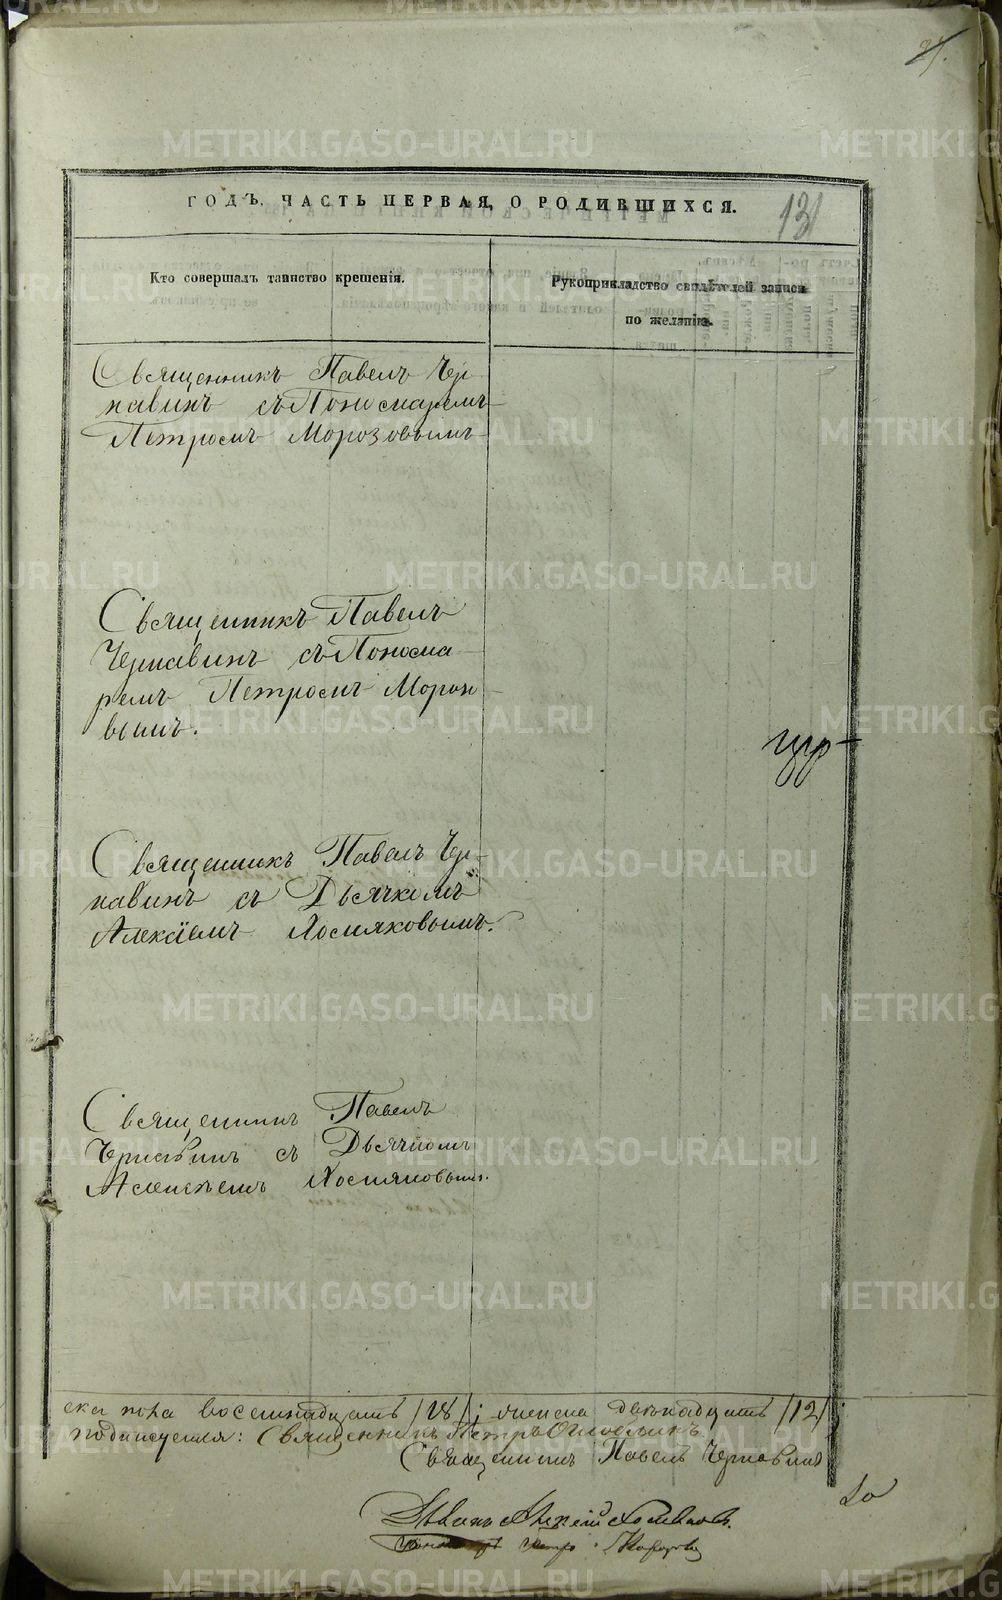 ГОДЪ. ЧАСТЬ ПЕРВАЯ, О РОДИВШИХСЯ.
131
Кто совершалъ таинство крещенія.
Рукоприкладство свидѣтелей записи
по желанію.
Священникъ Павелъ Чер
навинъ съ Пономаремъ
Петромъ Морозовымъ
Священникъ Павелъ
Чернавинъ съ Понома-
ремъ Петромъ Морозо
вымъ.
Священникъ Павелъ Чер-
навинъ съ Дьячкомъ
Алексіемъ Хомяковымъ.
Священникъ Павелъ
Чернавинъ съ Дьячкомъ
Алексѣемъ Хомяковымъ.
ска пола восемнадцать /18/; женска двѣнадцать /12/
подписуемся: Священникъ Петръ
Священникъ Павелъ Чернавинъ
Дьячекъ Алексій Хомяковъ.
Пономарь Петръ Морозовъ
METRIKI.GASO-URAL.RU